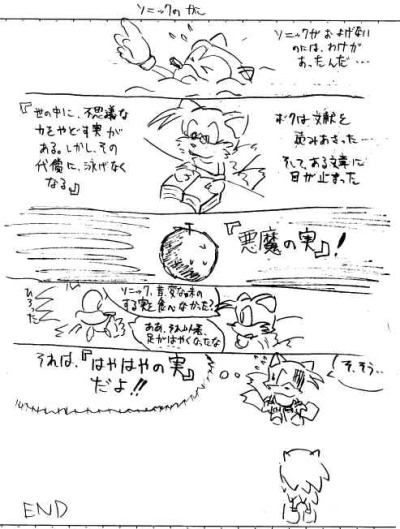 ソニックがおよげない
のには、わけが
あったんだ…
ボクは文献を
読みあさった…
そして、ある文章に
目が止まった
『世の中に、不思議な
力をやどす実が
ある。しかし、その
代償に、泳げなく
なる』
『悪魔の実』!
ソニック、昔、変な味の
する実を食べなかった?
ああ、そういえば、
足がはやくなったな
それは、『はやはやの実』
だよ!!
そ、そう…
END